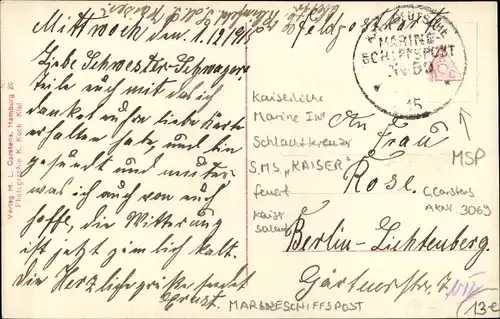 Mittwoch den 1./12/915
Liebe Schwester u. Schwager.
Teile euch mit das ich
dankend eure liebe Karte
erhalten habe, und bin
gesund und munter
was ich auch von euch
hoffe, die Witterung
ist jetzt ziemlich kalt.
Die Herzlichsten Grüße sendet
Ernst.
Feldpostkarte
DEUTSCHE
MARINE-
SCHIFFSPOST
15
An Frau
Rose.
Berlin-Lichtenberg.
Gärtnerstr. 7
Kaiserliche
Marine IWK
Schlachtkreuzer
S.M.S. „KAISER"
feuert
Kaiser
salut
MSP
Ccarstens
AKNr. 3069
MARINESCHIFFSPOST
13€
Verlag M. L. Carstens, Hamburg 20
Photographie K. Koch Kiel